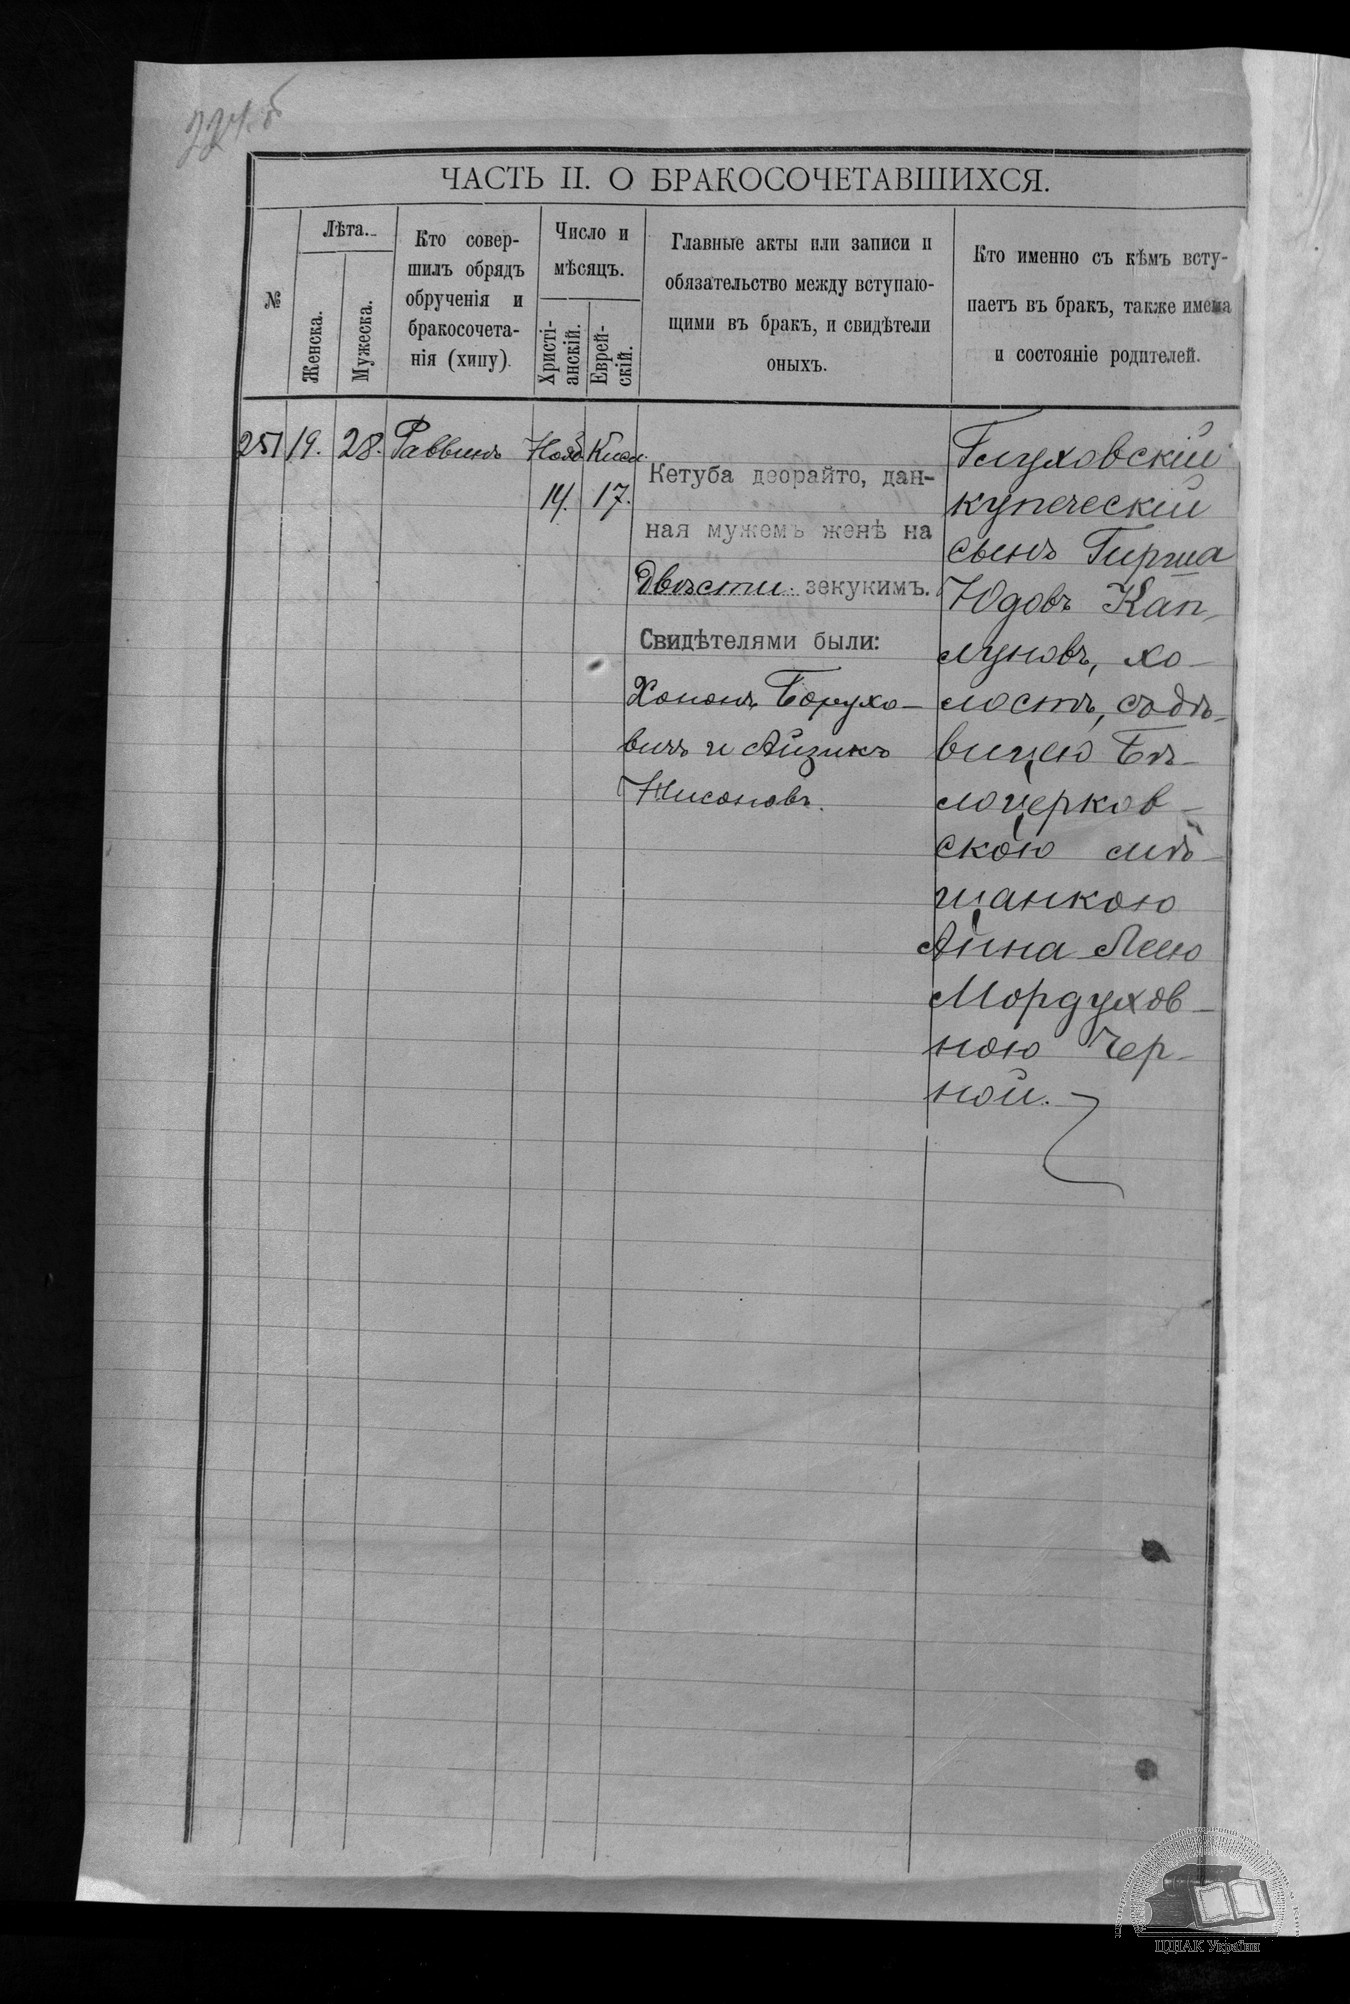 ЧАСТЬ II. О БРАКОСОЧЕТАВШИХСЯ.
№
Лѣта.
Женска.
Мужеска.
Кто совер-
шилъ обрядъ
обрученія и
бракосочета-
нія (хипу).
Число и
мѣсяцъ.
Христі-
анскій.
Еврей-
скій.
Главные акты или записи и
обязательство между вступаю-
щими въ брак, и свидѣтели
оныхъ.
Кто именно съ кѣмъ всту-
паетъ въ брак, также имена
и состояніе родителей.
251
19.
28.
Раввинъ
Нояб.
14.
Кисл.
17.
Кетуба деорайто, дан-
ная мужемъ женѣ на
двѣсти зекукимъ.
Свидѣтелями были:
Хононъ Борухо-
вичъ и Айзикъ
Нисоновъ.
Глуховскій
купеческій
сынъ Гирша
Юдовъ Кап-
луновъ, хо-
лостъ, съ дѣ-
вицею Бѣ-
лоцерков-
скою мѣ-
щанкою
Мордухов-
ною Чер-
ной.
ЦДІАК України